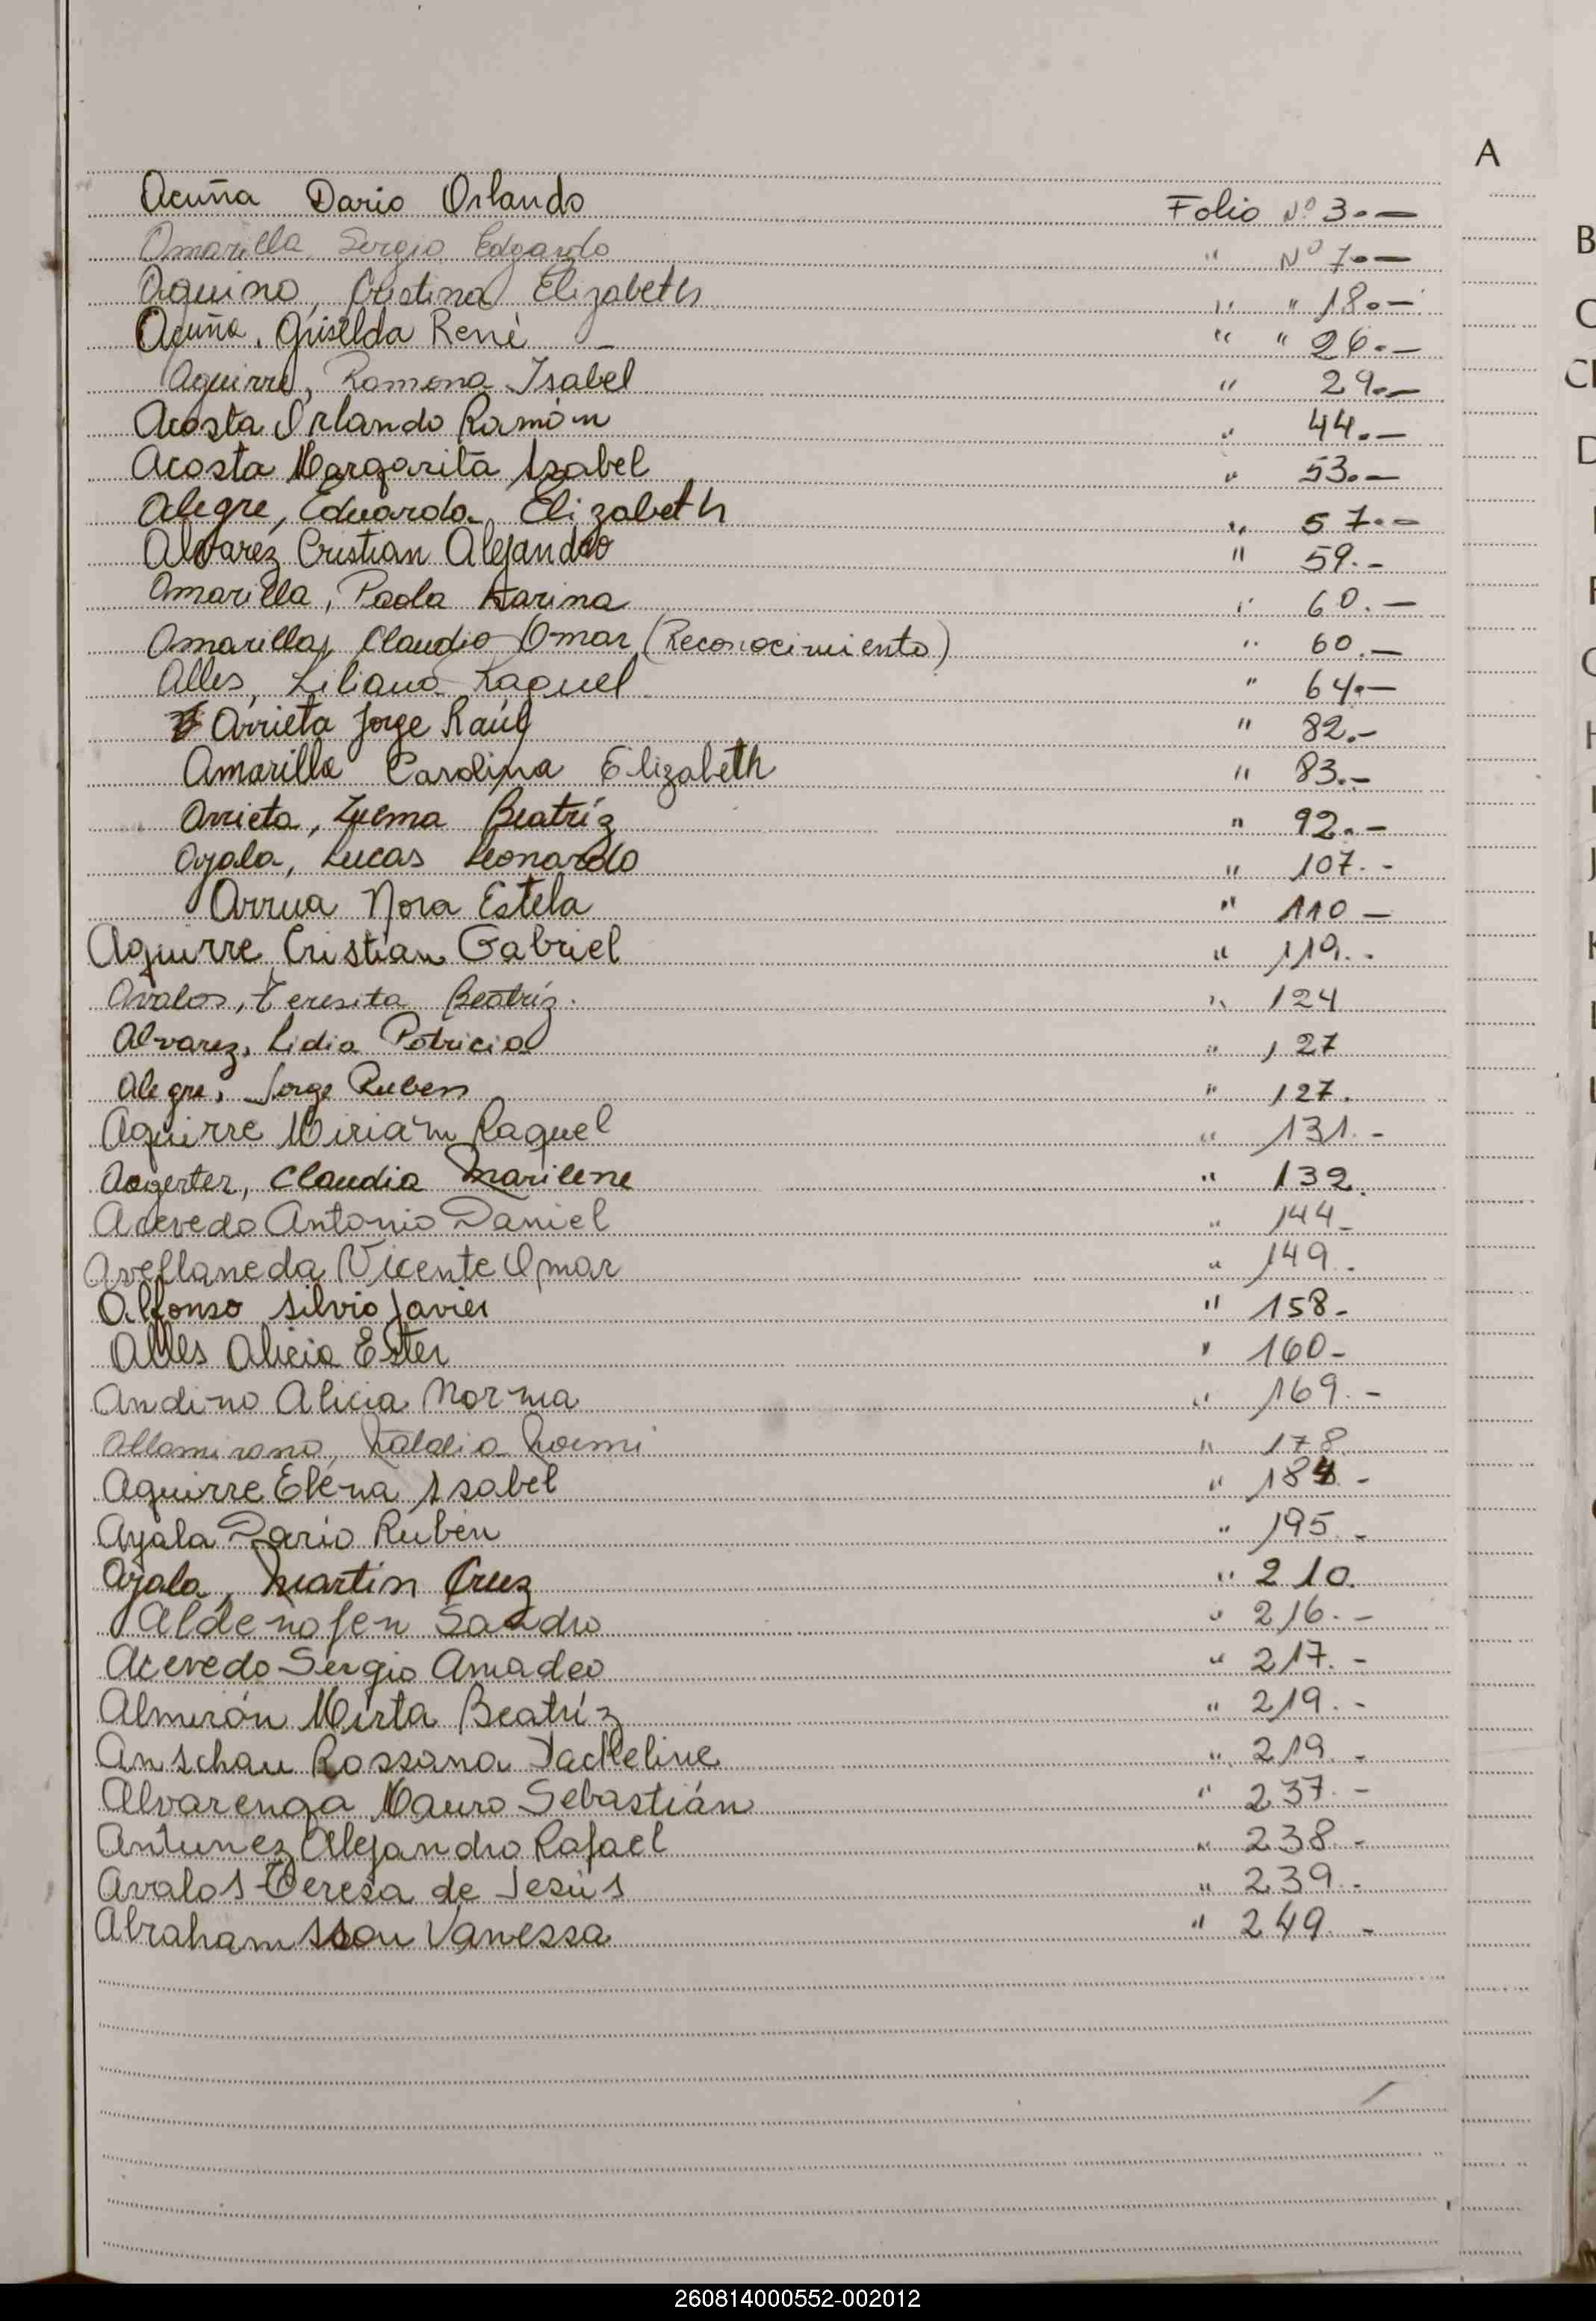 A
Acuña Dario Orlando Folio Nº 3.—
Amarilla Sergio Edgardo " Nº 7.—
Aquino, Cristina Elizabeth " " 18.—
Acuña, Griselda René " " 26.—
Aguirre, Ramona Isabel " 29.—
Acosta Orlando Ramón " 44.—
Acosta Margarita Isabel " 53.—
Alegre, Eduarda Elizabeth " 57.—
Alvarez Cristian Alejandro " 59.-
Amarilla, Paola Karina " 60.—
Amarilla, Claudio Omar (Reconocimiento) " 60.—
Alles, Liliana Raquel " 64.—
Arrieta Jorge Raúl " 82.-
Amarilla Carolina Elizabeth " 83.-
Arrieta, Zulma Beatríz " 92.-
Ayala, Lucas Leonardo " 107.-
Arrua Nora Estela " 110 —
Aguirre Cristian Gabriel " 119.-
Avalos, Teresita Beatríz. " 124
Alvarez, Lidia Patricia " 127
Alegre, Jorge Ruben " 127.
Aguirre Miriam Raquel " 131.-
Aegerter, Claudia Marilene " 132.
Acevedo Antonio Daniel " 144-
Avellaneda Vicente Omar " 149.-
Alfonso Silvio Javier " 158-
Alles Alicia Ester " 160-
Andino Alicia Norma " 169.-
Altamirano, Noemi " 178
Aguirre Elena Isabel " 184-
Ayala Dario Rubén " 195.-
Ayala, Martin Cruz " 210.
Sandro " 216.-
Acevedo Sergio Amadeo " 217.-
Almirón Mirta Beatríz " 219.-
Anschau Rossana Jackeline " 219.-
Alvarenga Mauro Sebastián " 237.-
Antunez Alejandro Rafael " 238.-
Avalos Teresa de Jesús " 239.-
Abrahamsson Vanessa " 249.-
260814000552-002012